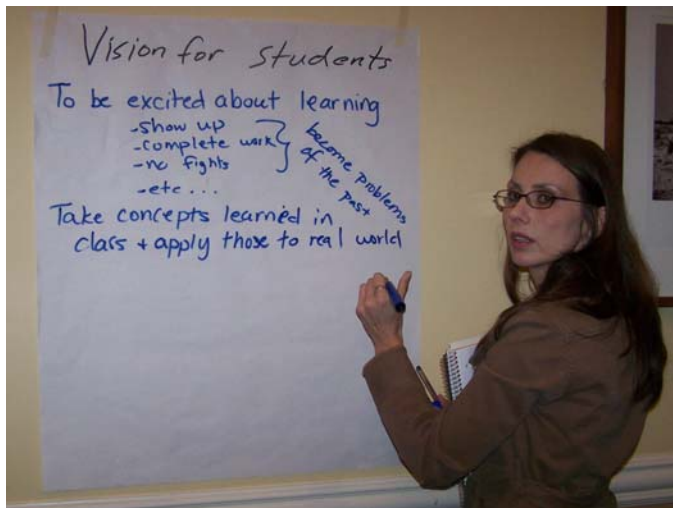 Vision for students
To be excited about learning
-show up
-complete work
-no fights
-etc...
become problems
of the past
Take concepts learned in
class + apply those to real world